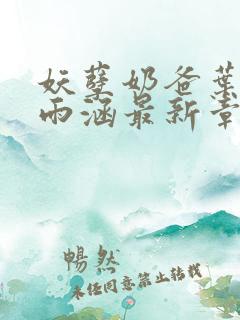 妖孽奶爸葉
雨涵最新章
暢然
未经同意禁止转载